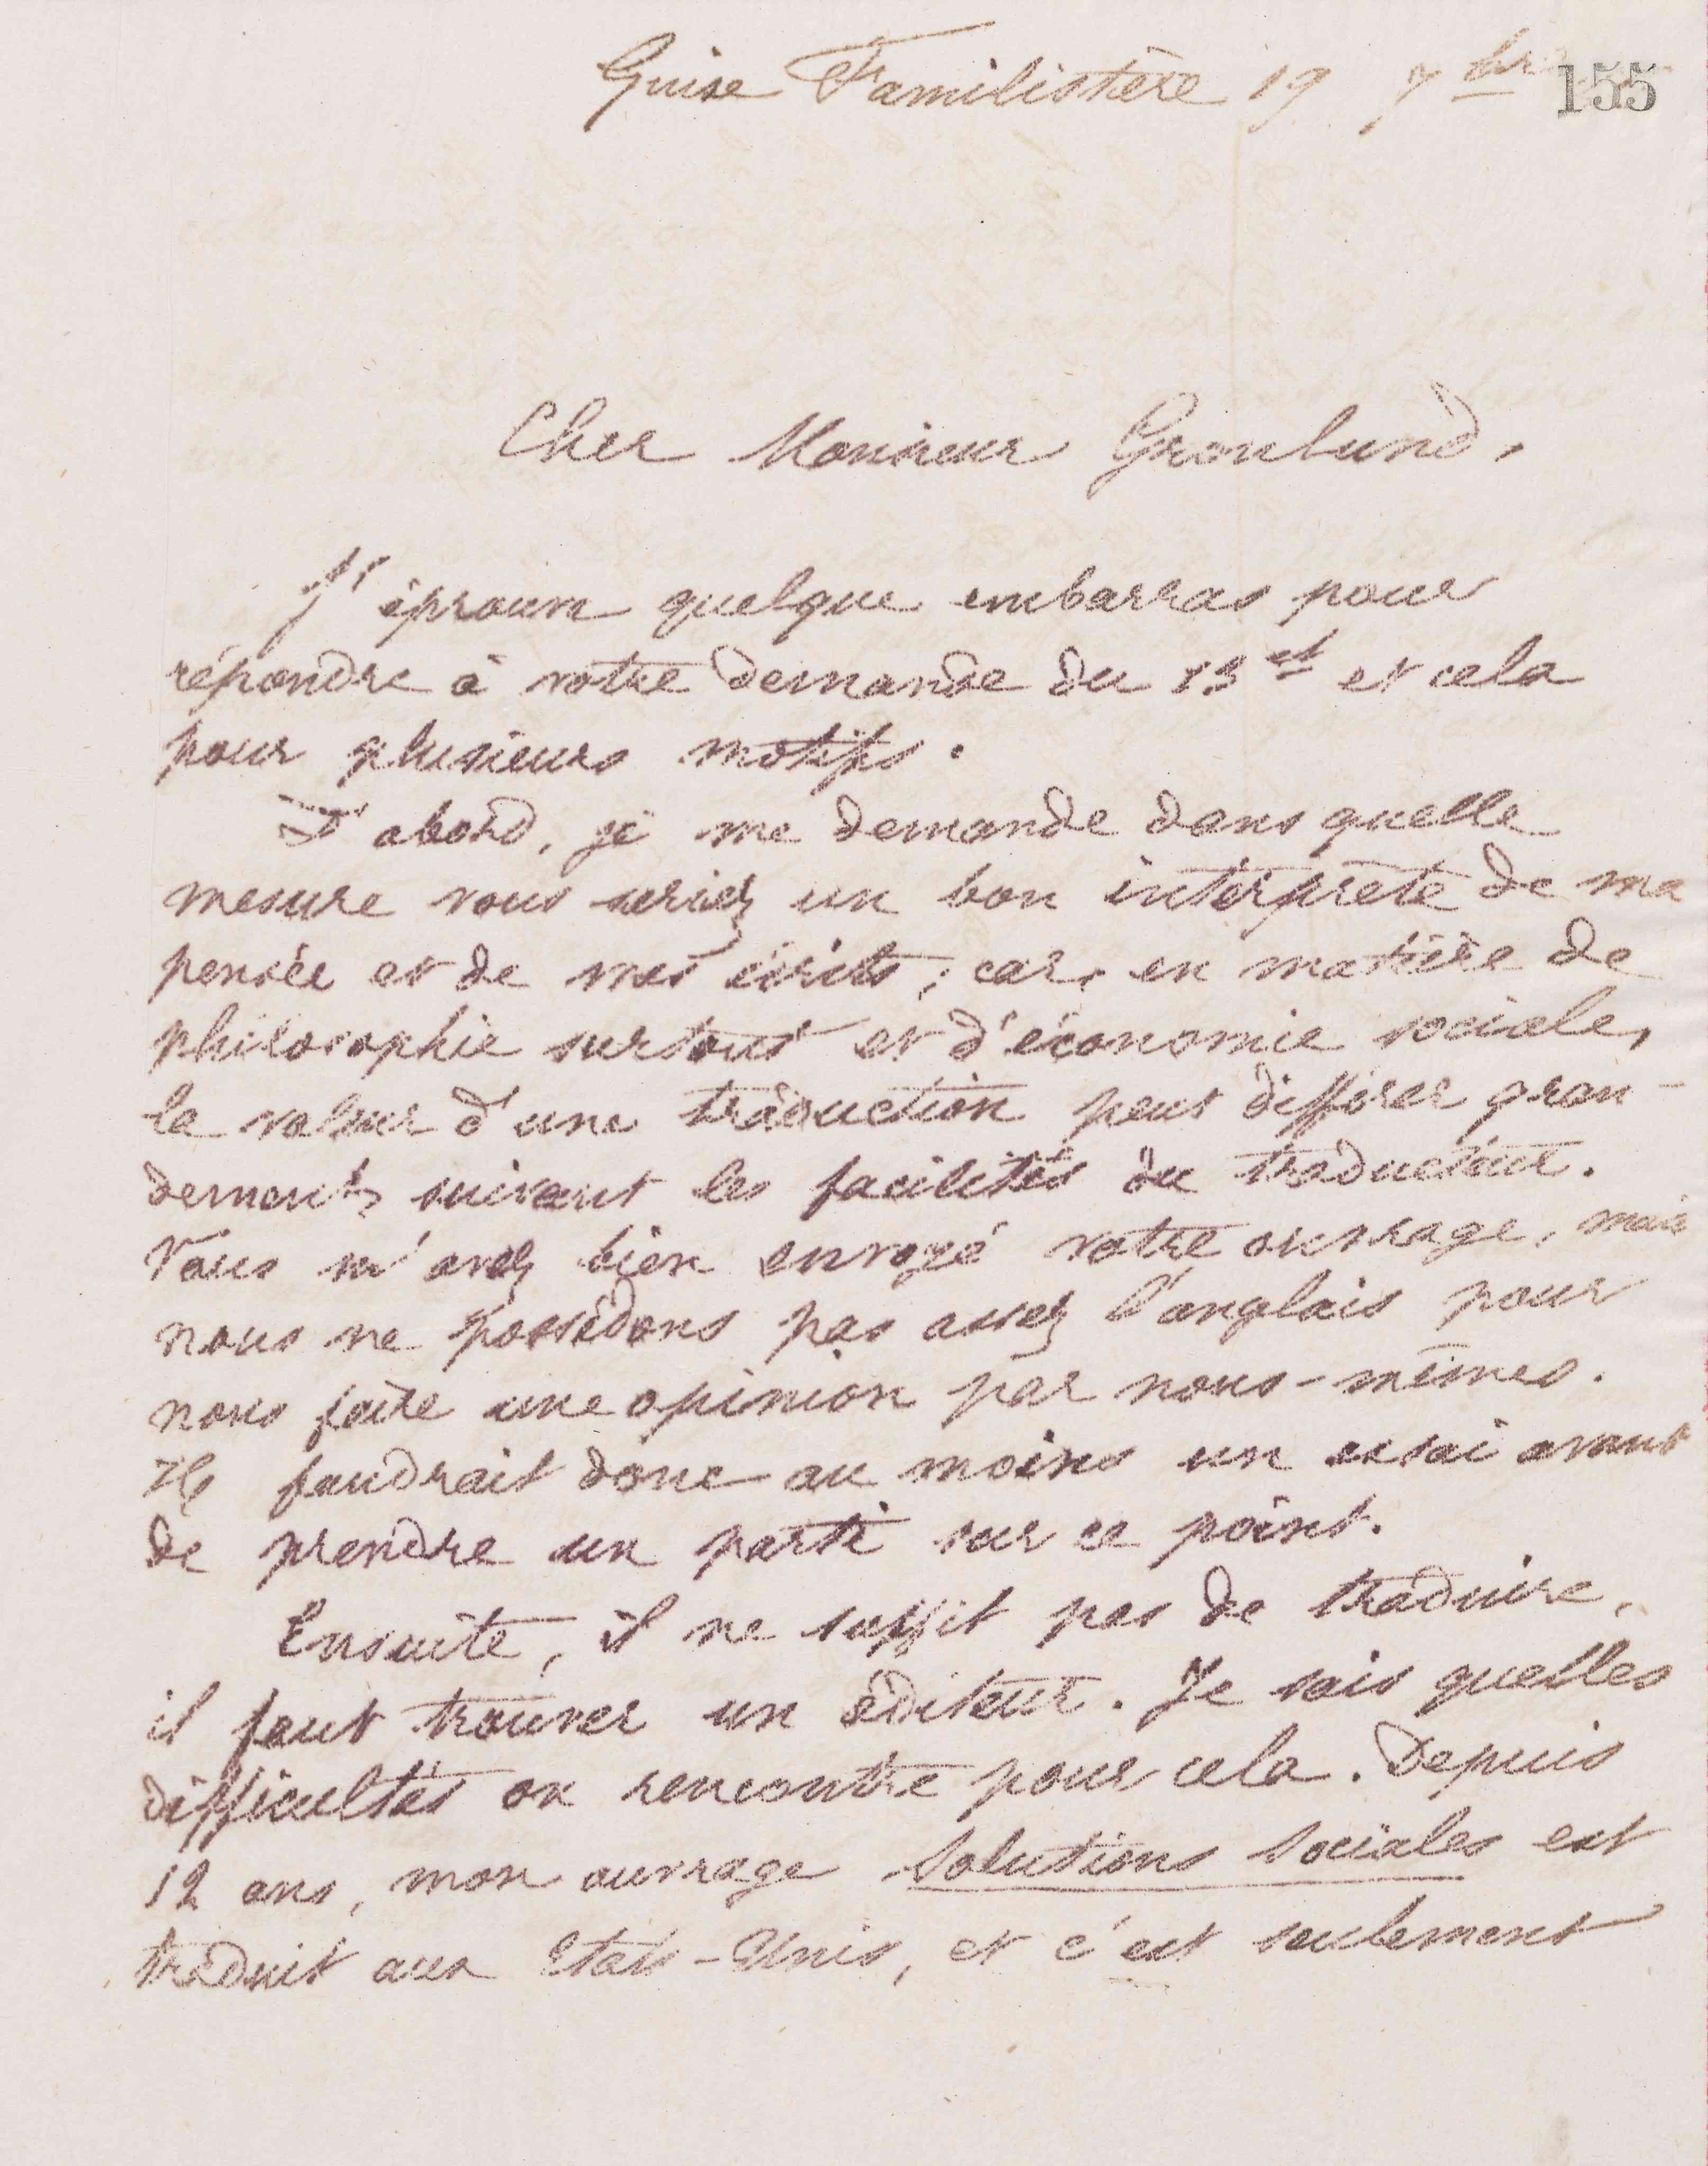 Guise Familistère 19 7bre
155
Cher Monsieur Gronlund,
J'éprouve quelque embarras pour
répondre à votre demande du 13 ct et cela
pour plusieurs motifs.
D'abord, je me demande dans quelle
mesure vous seriez un bon interprète de ma
pensée et de mes écrits, car, en matière de
philosophie surtout et d'économie sociale,
la valeur d'une traduction peut différer gran-
dement suivant les facilités du traducteur.
Vous m'avez bien envoyé votre ouvrage, mais
nous ne possédons pas assez l'anglais pour
nous faire une opinion par nous-mêmes.
Il faudrait donc au moins un essai avant
de prendre un parti sur ce point.
Ensuite, il ne suffit pas de traduire,
il faut trouver un éditeur. Je sais quelles
difficultés on rencontre pour cela. Depuis
12 ans, mon ouvrage Solutions Sociales est
traduit aux Etats-Unis, et c'est seulement